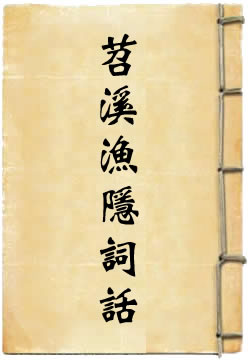 苕溪漁隱詞話